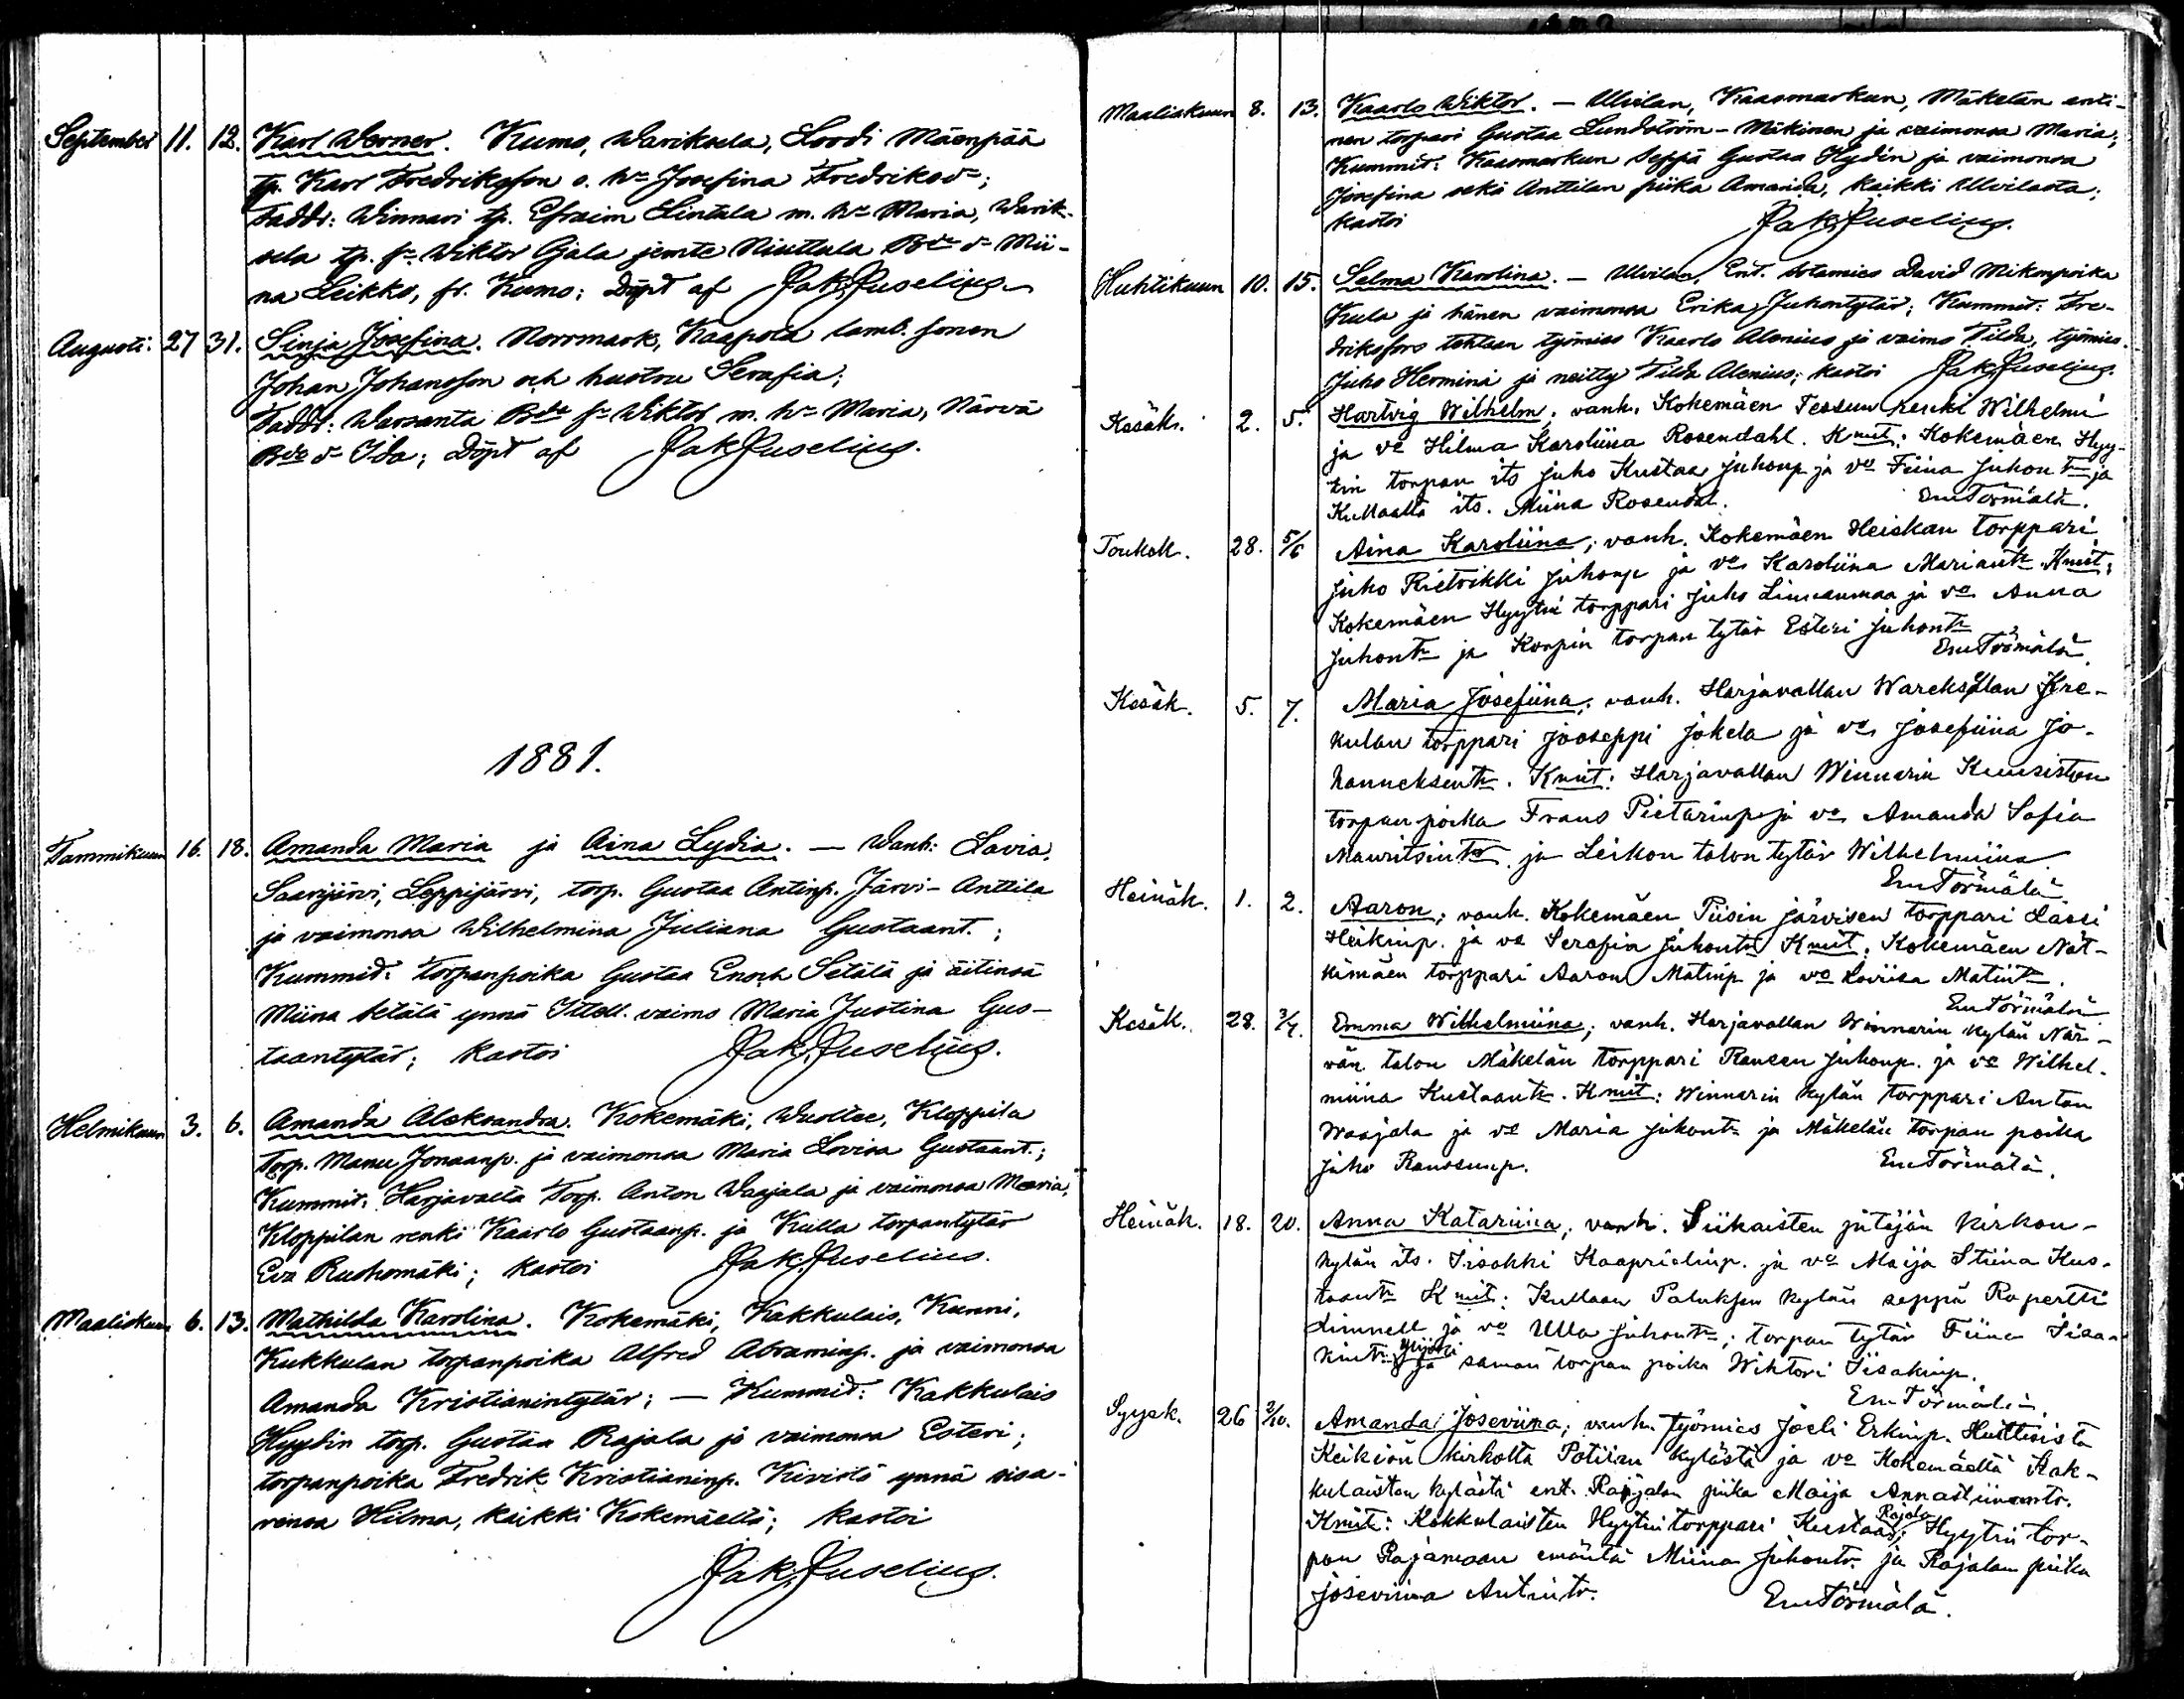 September 11. 12. Karl Werner. Kumo, Wariksela, Loodi Mäenpää
tp. Karl Fredriksson o. h:u Josefina Fredriksd:r;
Faddr: Winnari tp. Efraim Lintala m. h:u Maria, Warik-
sela tp. s:n Wiktor Ojala jemte Niuttula Bde d:r Mii-
na Leikko, fr. Kumo; Döpt af Jak. Juselius
Augusti. 27 31. Sinja Josefina. Norrmark, Kaapola lamb. sonen
Johan Johansson och hustru Serafia;
Faddr: Warsanta Bde s:n Wiktor m. h:u Maria, Närvä
Bde d:r Ida; Döpt af Jak. Juselius.
1881.
Tammikuun 16. 18. Amanda Maria ja Aina Lydia. — Wanh: Lavia,
Saarijärvi, Leppijärvi, torp. Gustaa Antinp. Järvi-Anttila
ja vaimonsa Wilhelmina Juliana Gustaant.;
Kummid: Torpanpoika Gustaa Enoch Setälä ja äitinsä
Miina Setälä ynnä Itsell. vaimo Maria Justina Gus-
taantytär; kastoi Jak. Juselius.
Helmikuun 3. 6. Amanda Aleksandra. Kokemäki, Wuoltee, Kloppila
Torp. Manu Jonaanp. ja vaimonsa Maria Lovisa Gustaant.;
Kummit: Harjavalta Torp. Anton Waajala ja vaimonsa Maria,
Kloppilan renki Kaarlo Gustaanp. ja Kulla torpantytär
Eva Ruohomäki; kastoi Jak. Juselius.
Maaliskuun 6. 13. Mathilda Karolina. Kokemäki, Kakkulais, Kunni,
Kukkulan torpanpoika Alfred Abraminp. ja vaimonsa
Amanda Kristianintytär; — Kummid: Kakkulais
Hyydin torp. Gustaa Rajala ja vaimonsa Esteri;
torpanpoika Fredrik Kristianinp. Kivistö ynnä sisa-
rensa Hilma, kaikki Kokemäeltä; kastoi
Jak. Juselius.
Maaliskuun 8. 13. Kaarlo Wiktor. — Ulvilan, Kaasmarkun, Mäkelän enti-
nen torpari Gustaa Lundström-Mäkinen ja vaimonsa Maria;
Kummit: Kaasmarkun seppä Gustaa Hydin ja vaimonsa
Josefina sekä Anttilan piika Amanda, kaikki Ulvilasta;
kastoi Jak. Juselius.
Huhtikuun 10. 15. Selma Karolina. — Ulvilan, Ent. sotamies David Mikonpoika
Kula ja hänen vaimonsa Erika Juhontytär; Kummit: Fre-
driksfors tehtaan työmies Kaarlo Alenius ja vaimo Tilda, työmies
Juho Hermina ja neitty Tilda Alenius; kastoi Jak. Juselius.
Kesäk. 2. 5. Hartvig Wilhelm; vanh. Kokemäen Tessun renki Wilhelmi
ja vo Hilma Karoliina Rosendahl. Kmit: Kokemäen Hyy-
tin torpan its Juho Kustaa Juhonp. ja vo Fiina Juhont ja
Kullaalta its. Miina Rosendal. Em Törmälä.
Toukok. 28. 5/6 Aina Karoliina; vanh. Kokemäen Heiskan torppari
Juho Rietrikki Juhonp ja vo Karoliina Mariant. Kmit:
Kokemäen Hyytin torppari Juho Linnanmaa ja vo Anna
Juhont ja Korpin torpan tytär Esteri Juhont
Em Törmälä.
Kesäk. 5. 7. Maria Josefiina; vanh. Harjavallan Wareksellan Kre-
kulan torppari Jooseppi Jokela ja vo Josefiina Jo-
hanneksent. Kmit: Harjavallan Winnarin Kuusiston
torpan poika Frans Pietarinp. ja vo Amanda Sofia
Mauritsint. ja Leikon talon tytär Wilhelmiina
Em Törmälä.
Heinäk. 1. 2. Aaron; vanh. Kokemäen Piisin järvisen torppari Lassi
Heikinp. ja vo Serafia Juhont. Kmit: Kokemäen Nät-
kimäen torppari Aaron Matinp ja vo Loviisa Matint.
Em Törmälä
Kesäk. 28. 3/7. Emma Wilhelmiina; vanh. Harjavallan Winnarin kylän När-
vän talon Mäkelän torppari Ranssu Juhonp. ja vo Wilhel-
miina Kustaant. Kmit: Winnarin kylän torppari Anton
Waajala ja vo Maria Juhont ja Mäkelän torpan poika
Juho Ranssunp. Em Törmälä.
Heinäk. 18. 20. Anna Katariina; vanh. Siikaisten pitäjän kirkon-
kylän its. Iisakki Kaaprielinp. ja vo Maija Stiina Kus-
taant Kmit: Kullaan Paluksen kylän seppä Ropertti
Linnell ja vo Ulla Juhont; torpan tytär Fiina Iisa-
kint ja saman torpan poika Wihtori Iisakinp.
Em Törmälä.
Syysk. 26 2/10. Amanda Joseviina; vanh. työmies Joeli Erkinp. Huittisista
Keikiön kirkolta kylästä ja vo Kokemäeltä Kak-
kulaisten kylästä ent. Rajalan piika Maija Annastiinantr.
Kmit: Kakkulaisten Hyytin torppari Kustaa Rajala; Hyytin tor-
pan Rajamaan emäntä Miina Juhontr. ja Rajalan piika
Joseviina Antintr. Em Törmälä.